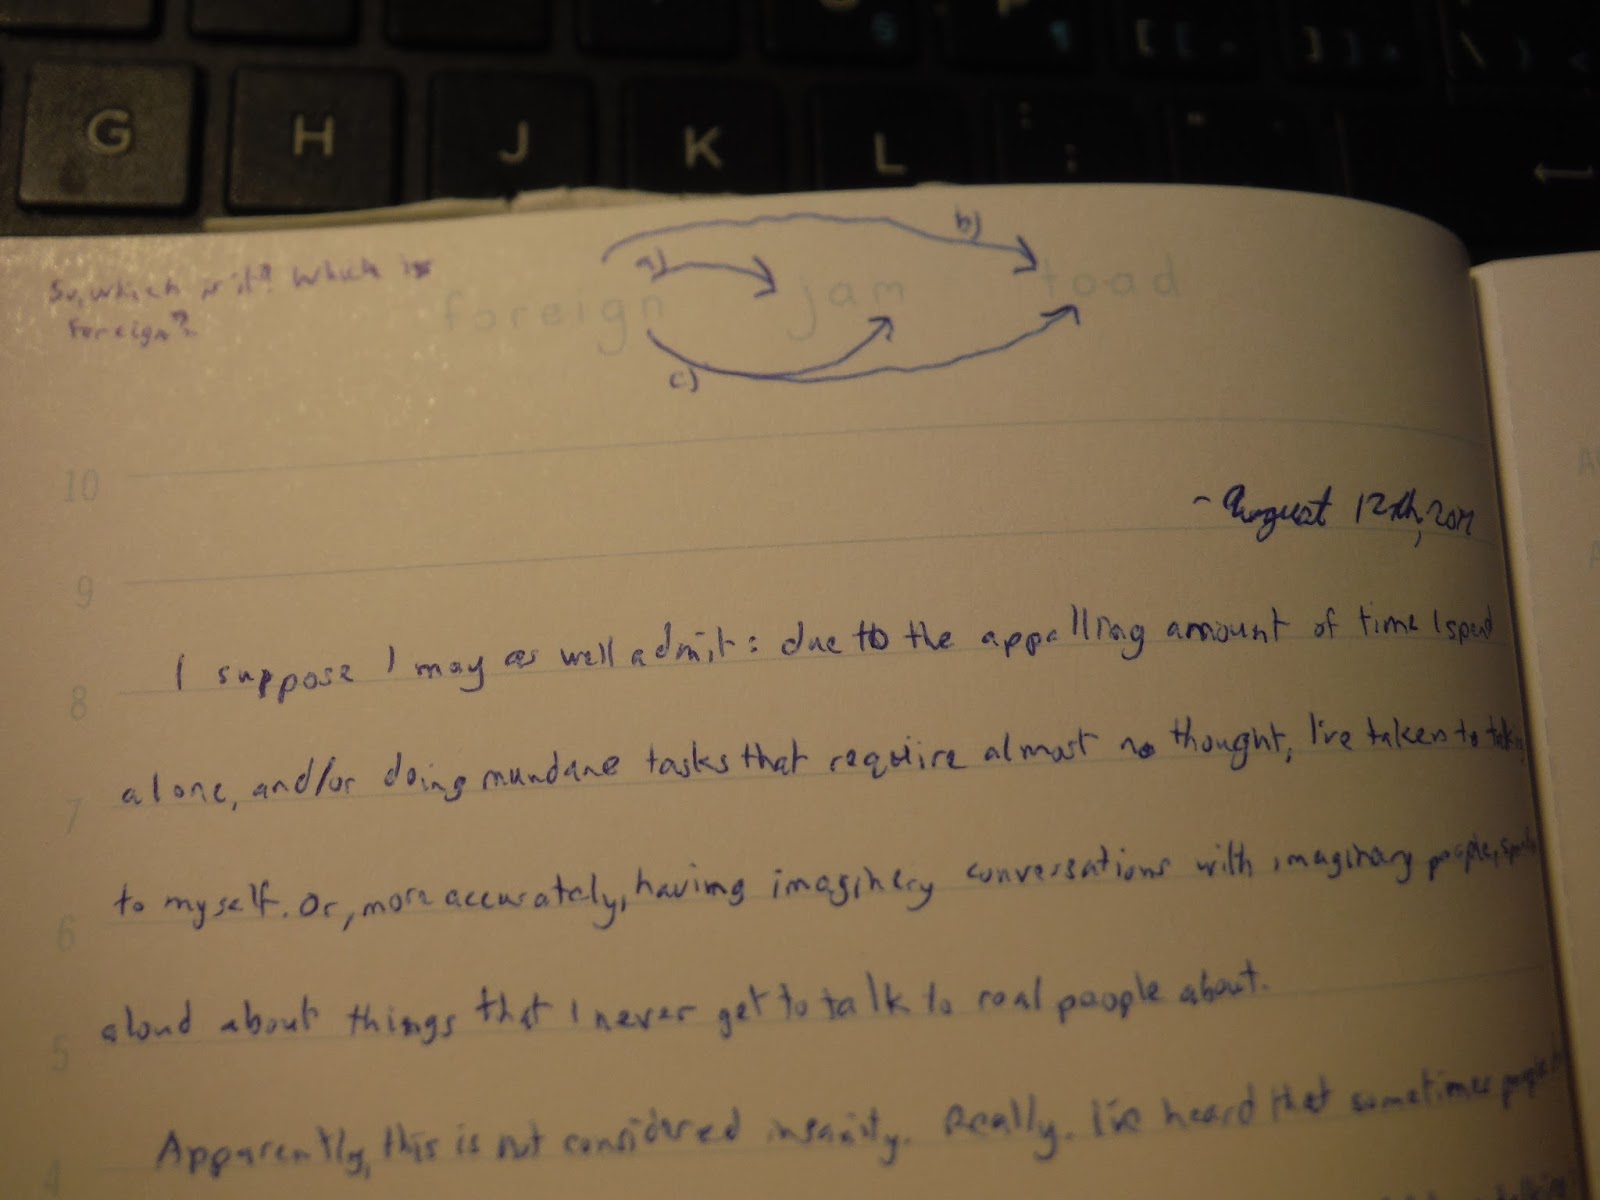 G H J K L ; [ ] \
b)
a)
So, which is it? Which is
foreign?
foreign jam toad
c)
10
- August 12th,
9
I suppose I may as well admit: due to the appalling amount of time I spend
8
alone, and/or doing mundane tasks that require almost no thought, I've taken to
7
to myself. Or, more accurately, having imaginery conversations with imaginary people,
6
aloud about things that I never get to talk to real people about.
5
Apparently, this is not considered insanity. Really. I've heard that sometimes people
4